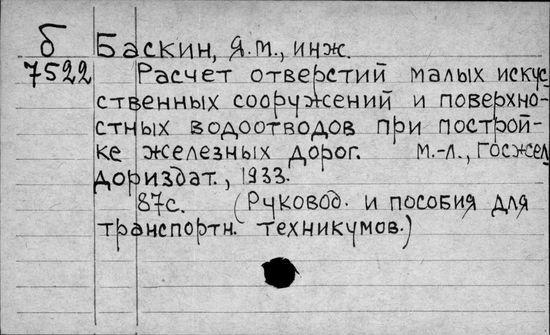 б Баскин, Я.М., инж.
7522 Расчет отверстий малых искус-
ственных сооружений и поверхно-
стных водоотводов при построй-
ке железных дорог. М.-Л., Госжел
дориздат., 1933.
87с. (Руковод. и пособия для
транспортн. техникумов.)